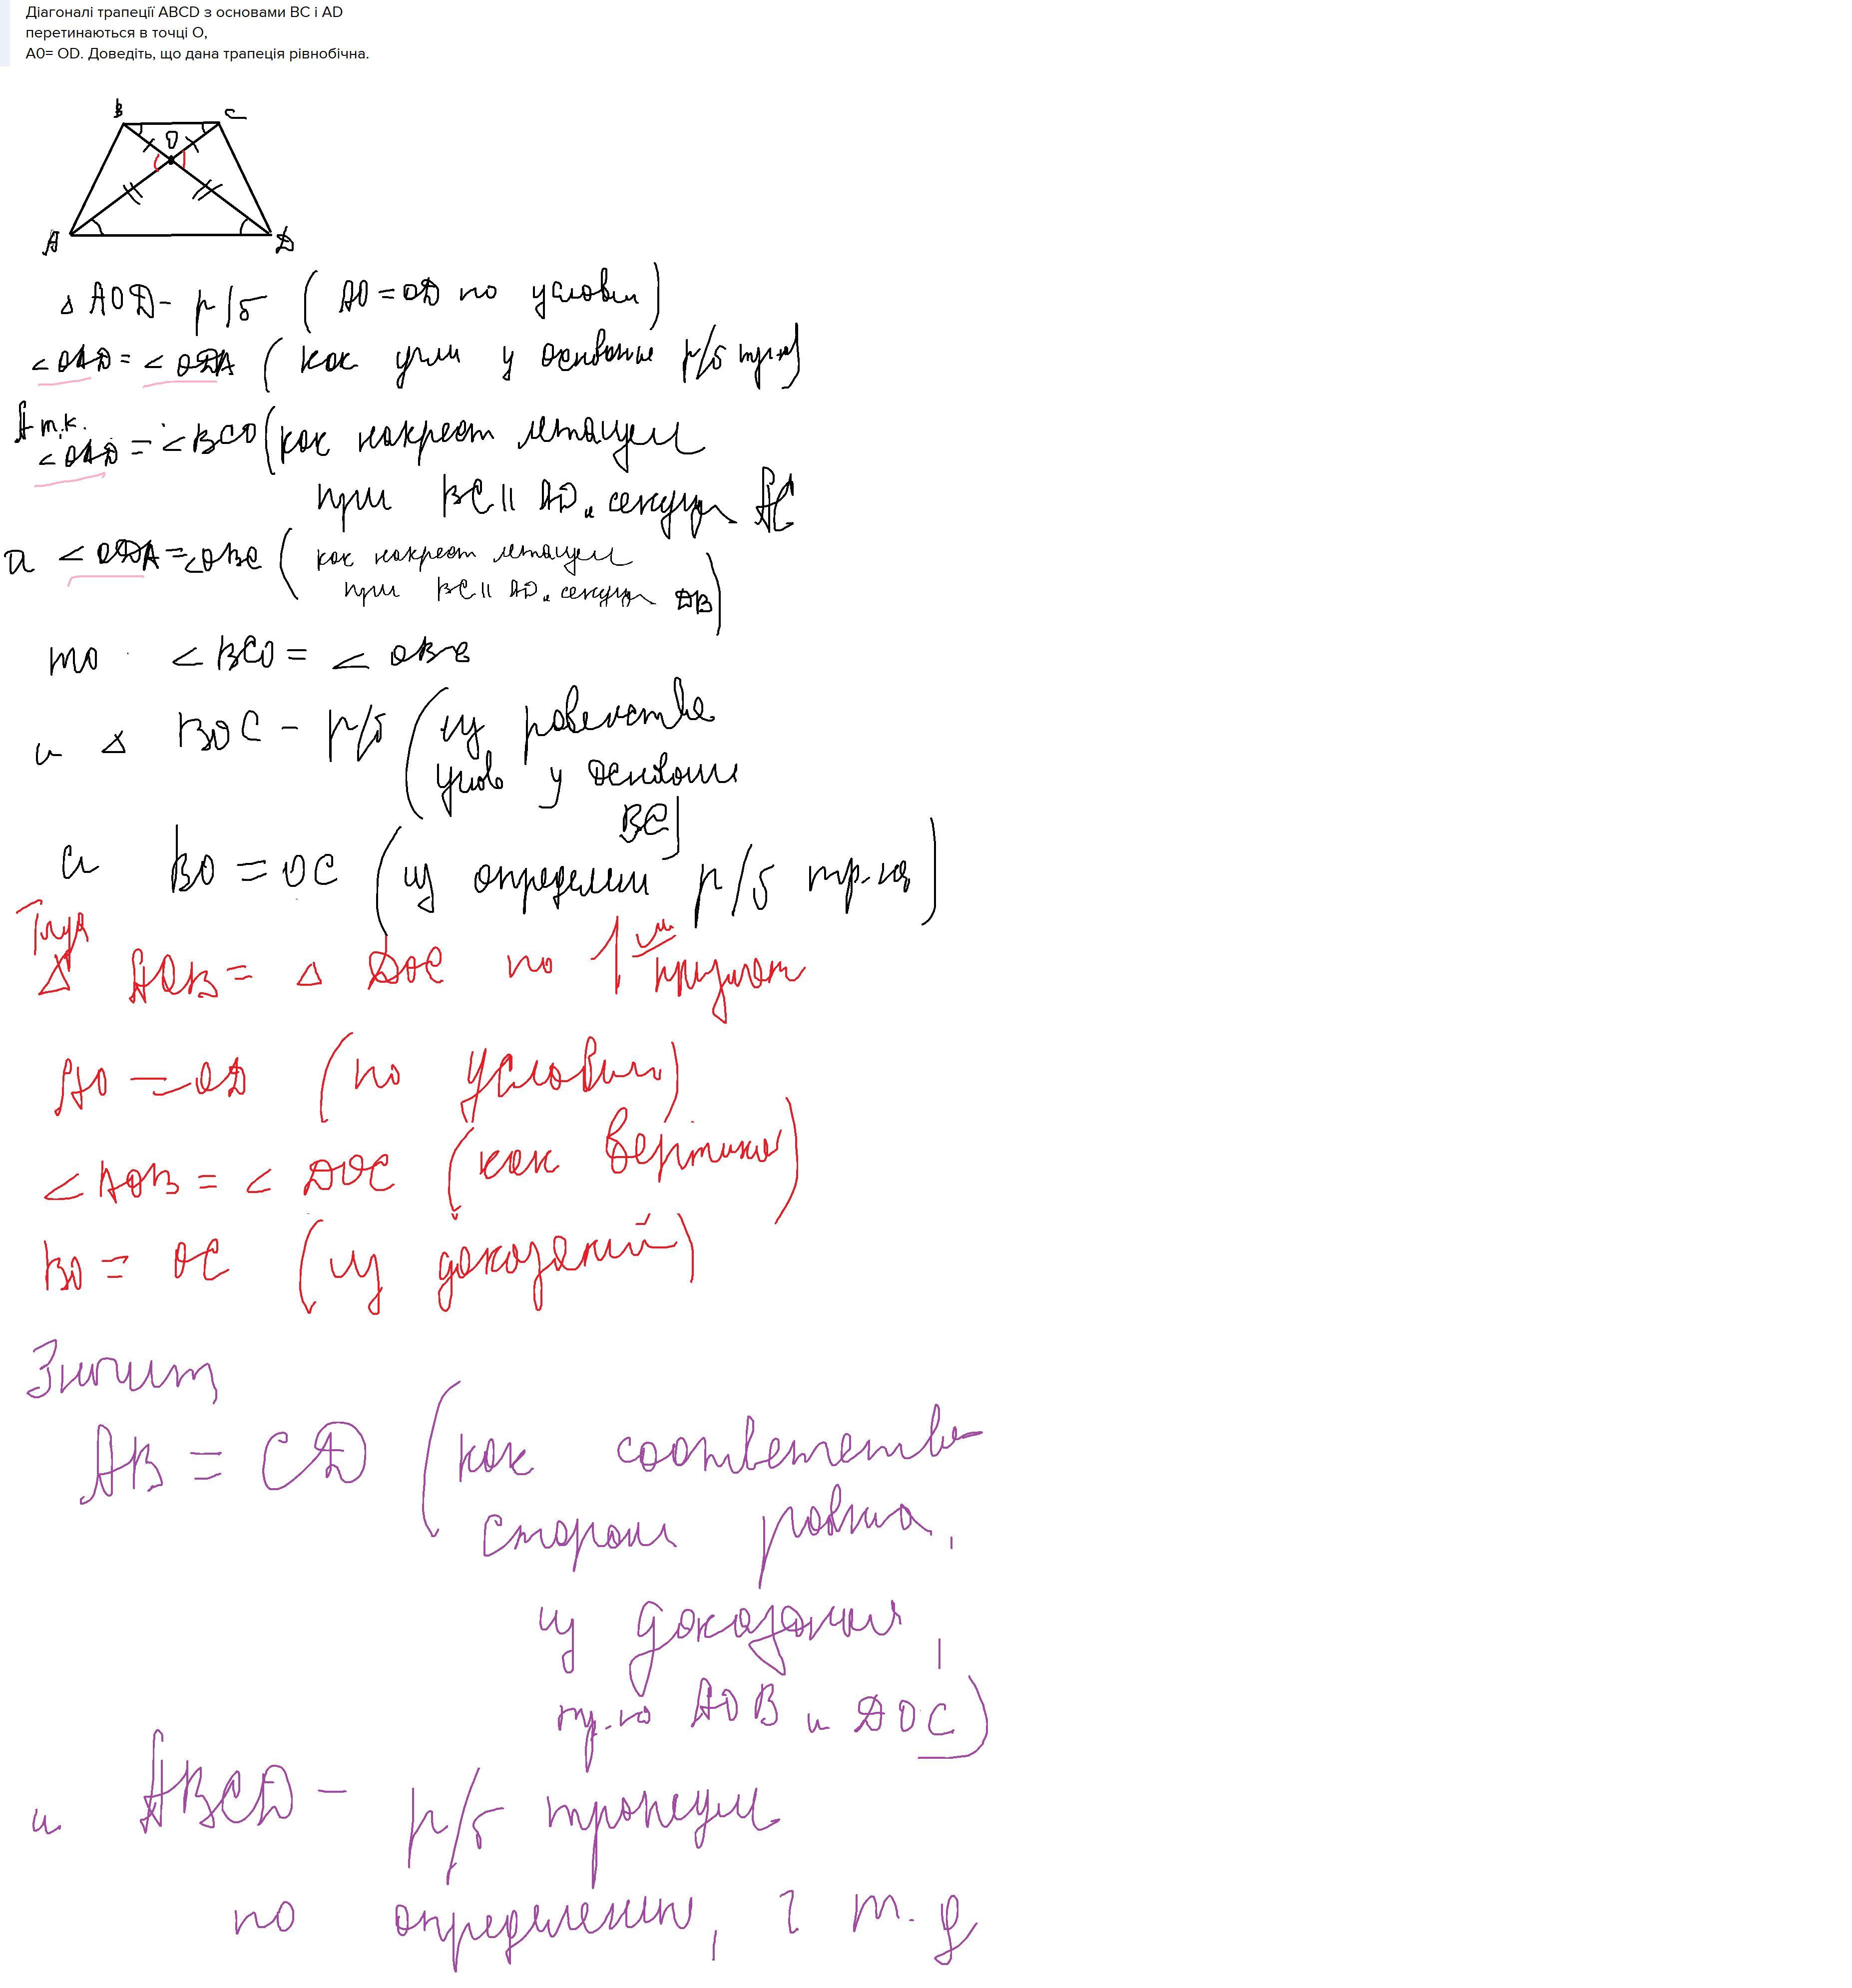 Діагоналі трапеції ABCD з основами BC і AD
перетинаються в точці О,
A0= OD. Доведіть, що дана трапеція рівнобічна.
B C
O
A D
△ AOD - р/б ( AO = OD по условию )
∠OAD = ∠ODA ( как углы у основание р/б тр-ка )
А т.к.
∠OAD = ∠BCO ( как накрест лежащие
при BC || AD и секущ AC
а ∠ODA = ∠OBC ( как накрест лежащие
при BC || AD и секущ DB )
то ∠BCO = ∠OBC
и △ BOC - р/б ( из равенства
углов у основан
BC )
и BO = OC ( из определен р/б тр-ка )
△ AOB = △ DOC по 1 признак
AO = OD ( по условию )
∠AOB = ∠DOC ( как вертикал )
BO = OC ( из доказаний )
Значит
AB = CD ( как соответств
сторон равна.
из доказания
тр-ка AOB и DOC )
и ABCD - р/б трапеция
по определению, ч т. д